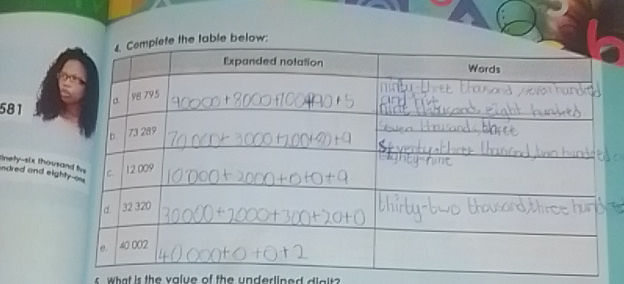 4. Complete the table below:
Expanded notation Words
a. 98 795 90000+8000+700+90+5 ninty-three thousand, seven hundred
and
nine thousand, eight hundred
b. 73 289 70 000+ 3000+200+80+9 seven thousand, three
seventy-three thousand, two hundred
eighty-nine
c. 12 009 10 000+ 2000+0+0+9
d. 32 320 30000+2000+300+20+0 thirty-two thousand, three hundred
e. 40 002 40 000+0+0+2
5. What is the value of the underlined digit?
581
ninety-six thousand five
hundred and eighty-one